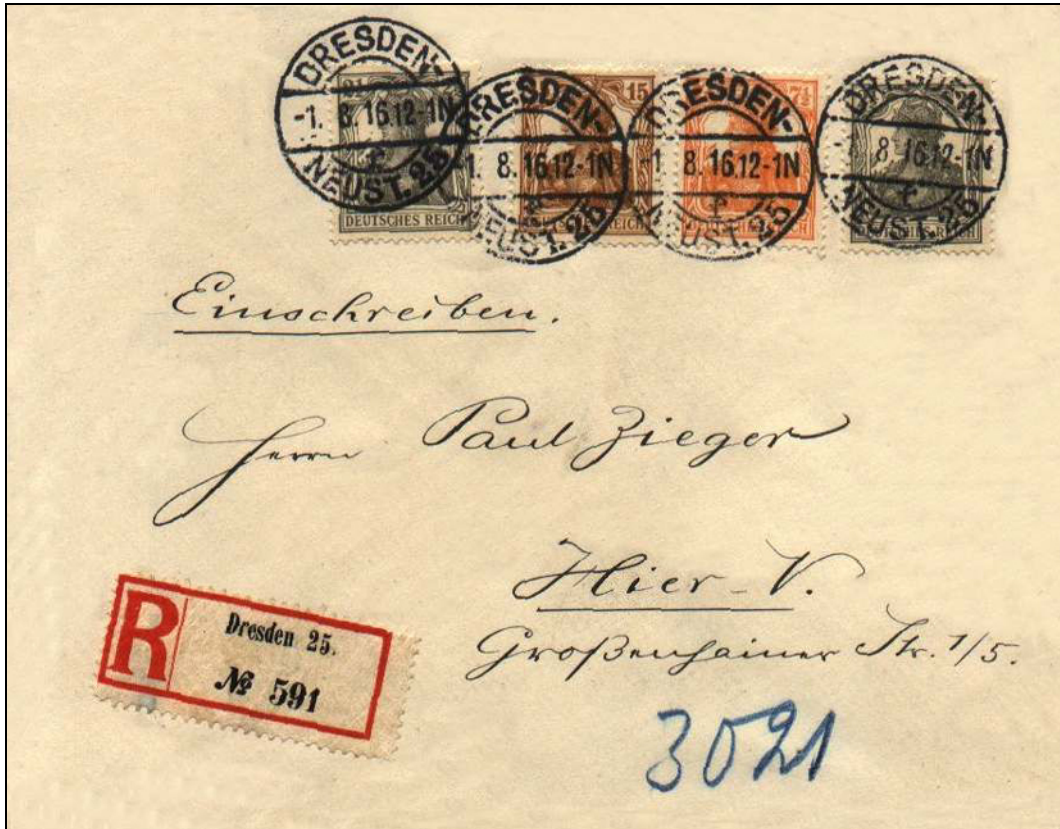 DRESDEN-
-1. 8. 16.12-1N
NEUST. 25
DRESDEN-
1. 8. 16.12-1N
NEUST. 25
DRESDEN-
-1 8. 16.12-1N
NEUST. 25
DRESDEN-
8. 16.12-1N
NEUST. 25
2½
DEUTSCHES REICH
15
REICH
7½
Einschreiben.
Herrn Paul Zieger
Hier-N.
Großenhainer Str. 1/5.
R
Dresden 25.
№ 591
3021